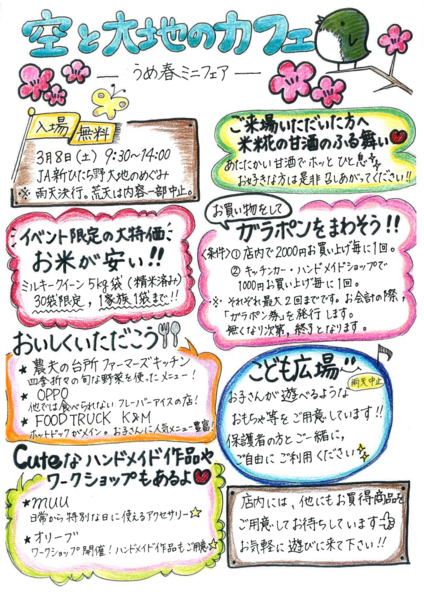 空と大地のカフェ
― うめ春ミニフェア ―
入場無料
3月8日(土) 9:30~14:00
JA新ひたち野大地のめぐみ
※ 雨天決行。荒天は内容一部中止。
ご来場いただいた方へ
米糀の甘酒のふる舞い
あたたかい甘酒でホッとひと息。
お好きな方は是非召しあがってください!!
イベント限定の大特価
お米が安い!!
ミルキークイーン 5kg袋 (精米済み)
30袋限定, 1家族1袋まで!!
お買い物をして
ガラポンをまわそう!!
〈条件〉① 店内で2000円お買い上げ毎に1回。
② キッチンカー・ハンドメイドショップで
1000円お買い上げ毎に1回。
※ それぞれ最大2回までです。お会計の際,
「ガラポン券」を発行します。
無くなり次第, 終了となります。
おいしくいただこう
★ 農夫の台所ファーマーズキッチン
四季折々の旬な野菜を使ったメニュー!
★ OPPO
他では食べられないフレーバーアイスの店!
★ FOOD TRUCK K&M
ホットドッグがメイン。お子さんに人気メニュー豊富!
こども広場
雨天中止
お子さんが遊べるような
おもちゃ等をご用意しています!!
保護者の方とご一緒に,
ご自由にご利用ください
Cuteなハンドメイド作品や
ワークショップもあるよ
★ muu
日常から特別な日に使えるアクセサリー☆
★ オリーブ
ワークショップ開催!ハンドメイド作品もご用意☆
店内には,他にもお買得商品を
ご用意してお待ちしています
お気軽に遊びに来て下さい!!